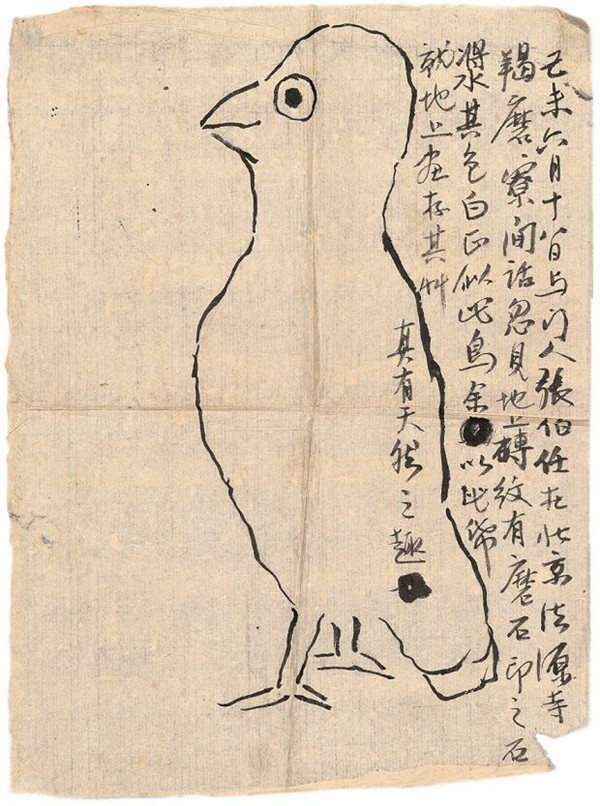 己未六月十八日与门人張伯任在北京法源寺
羯磨寮間話忽見地上磚紋有磨石印之石
漿其色白正似此鳥余以此帋
就地上画存其艸
真有天然之趣